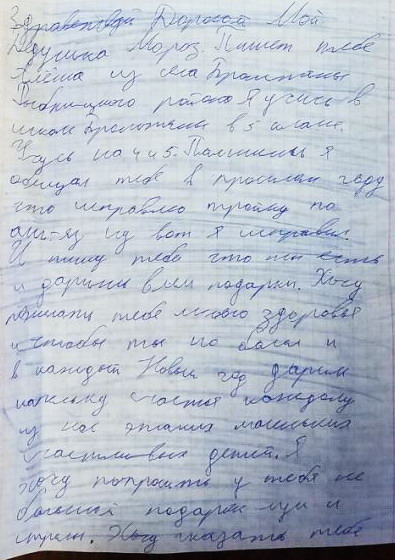 Здравствуй Дорогой Мой
Дедушка Мороз. Пишет тебе
Алёша из села
района Я учусь в
школе в 5 классе.
Учусь на 4 и 5. Помнишь я
обещал тебе в прошлом году
что исправлю тройку по
анг-яз ну вот я исправил.
И пишу тебе что ты есть
и даришь всем подарки. Хочу
пожелать тебе много здоровья
и чтобы ты не болел и
в каждый Новый год дарил
счастья каждому
из нас маленьких
счастливых детей. Я
хочу попросить у тебя не
большой подарок лук и
стрелы. Хочу сказать тебе